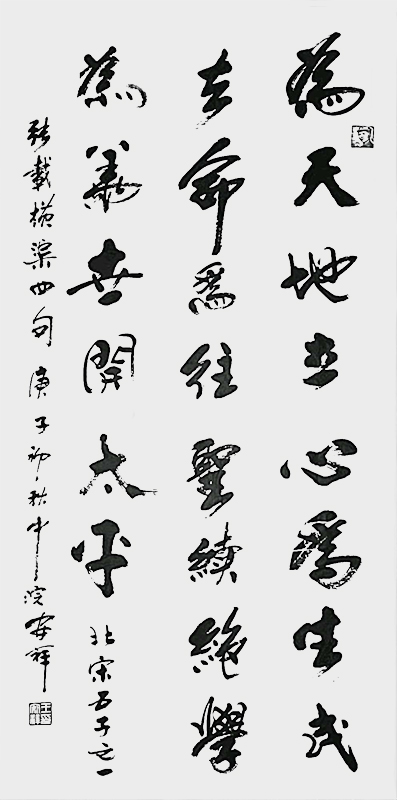 為天地立心為生民
立命為往聖續絕學
為萬世開太平 北宋五子之一
張載橫渠四句 庚子初秋中浣安祥